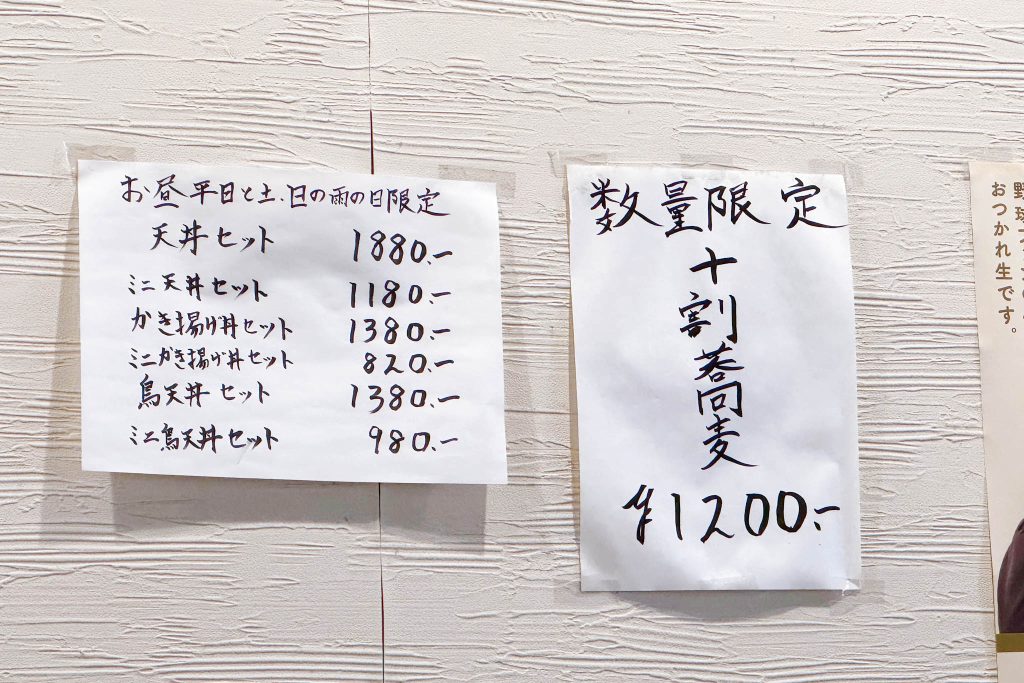 お昼平日と土、日の雨の日限定
天丼セット 1880.-
ミニ天丼セット 1180.-
かき揚げ丼セット 1380.-
ミニかき揚げ丼セット 820.-
鳥天丼セット 1380.-
ミニ鳥天丼セット 980.-
数量限定
十割蕎麦
¥1200.-
おつかれ生です。